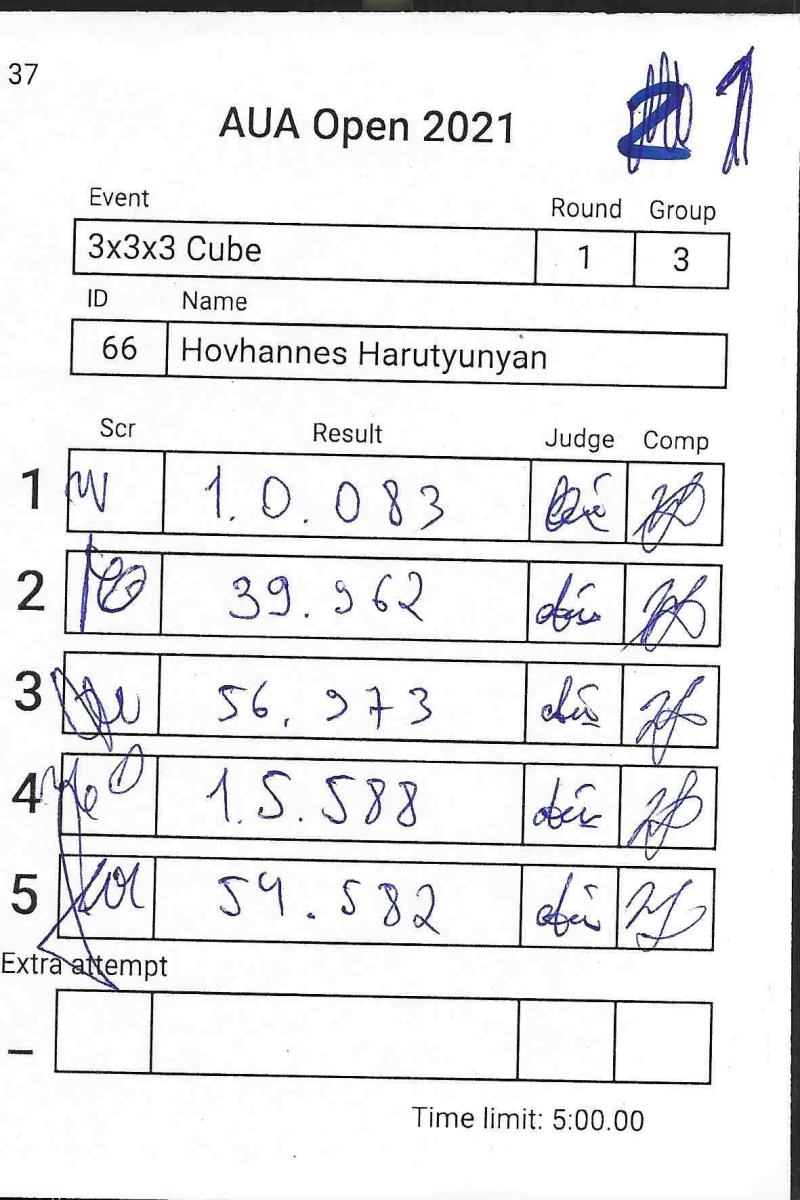 37
1
AUA Open 2021
Event Round Group
3x3x3 Cube 1 3
ID Name
66 Hovhannes Harutyunyan
Scr Result Judge Comp
1 1.0.083
2 39.962
3 56.973
4 1.5.588
5 54.582
Extra attempt
–
Time limit: 5:00.00